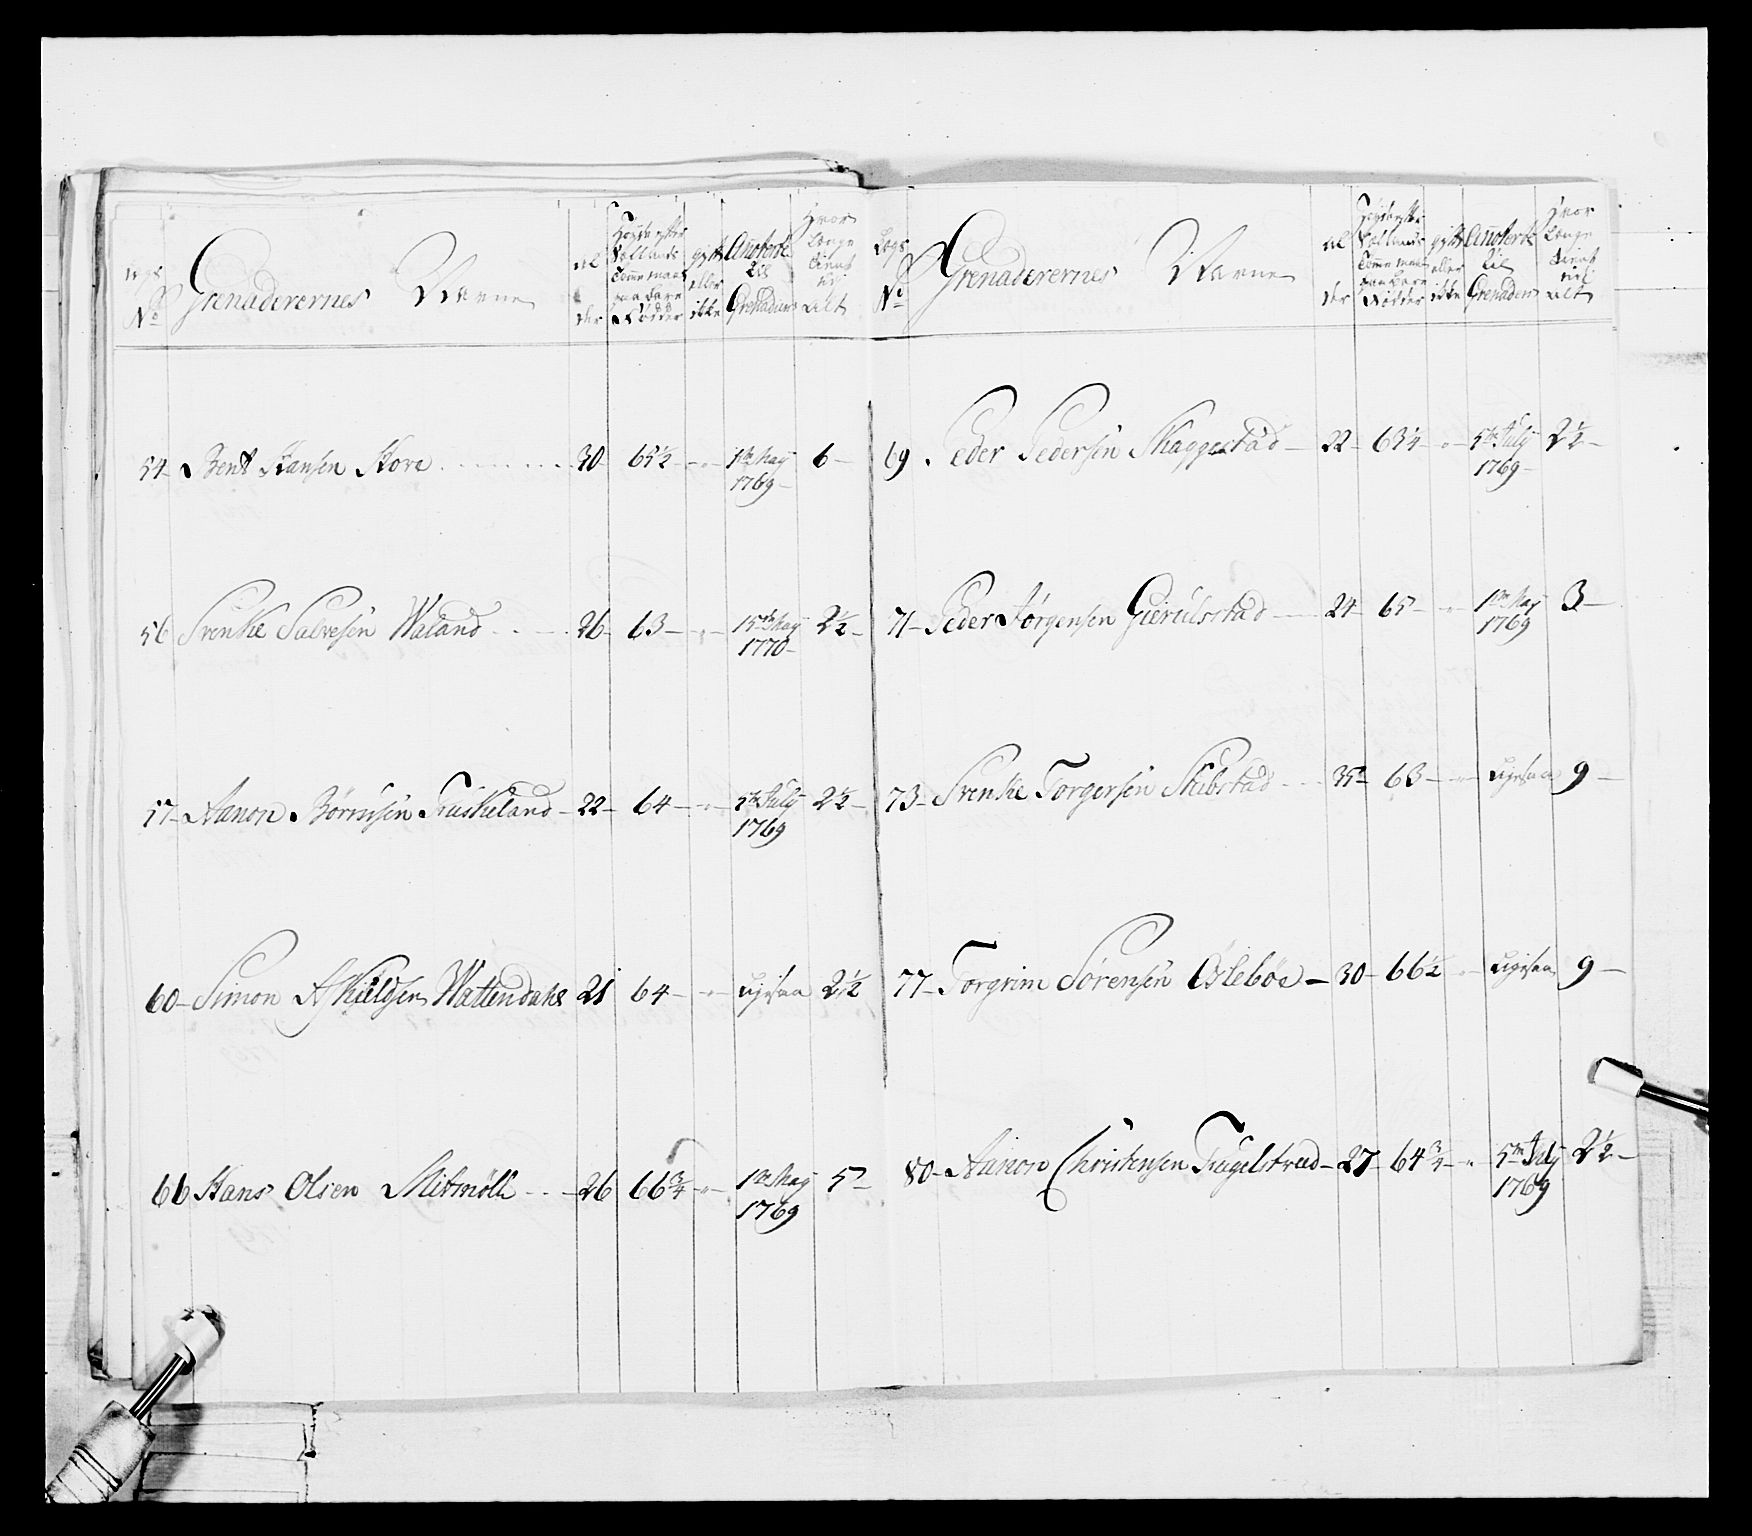 Legs No Grenaderernes Navne Al der Høyde efter Sællands Tomme maal paa bare Fødder gift eller ikke Anoterte til Grenaderer Hvor Længe tient udi alt
54 Bent Hansen Hove 30 65½ 1te May 1769 6
56 Svenke Salvesen Waland 26 63 15de May 1770 2½
57 Aanon Børrusen Tuskeland 22 64 5te July 1769 2½
60 Simon Askieldsen Wattendahl 21 64 ligesaa 2½
66 Hans Olsen Mitmølle 26 66¾ 1te May 1769 5
Legs No Grenaderernes Navne Al der Høyde efter Sællands Tomme maal paa bare Fødder gift eller ikke Anoterte til Grenaderer Hvor Længe tient udi alt
69 Peder Pedersen Skaggestad 22 63¼ 5te July 1769 2½
71 Peder Jørgensen Gierulsstad 24 65 1te May 1769 3
73 Svenke Torgersen Skibstad 35 63 ligesaa 9
77 Torgrim Sørensen Øslebøe 30 66½ ligesaa 9
80 Aanon Christensen Fugelstved 27 64¾ 5te July 1769 2½